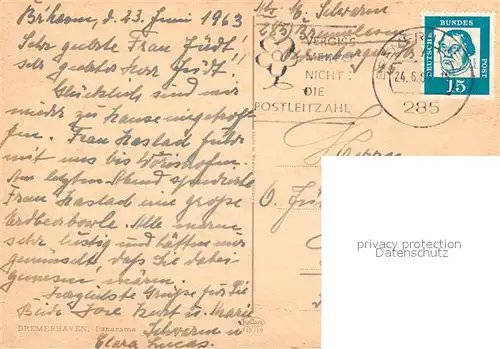 B'haven, d. 23. Juni 1963
Sehr geehrte Frau Jüdt!
Sehr geehrter Herr Jüdt!
Glücklich sind wir
wieder zu Hause eingetrof-
fen. Frau Haslad fuhr
mit uns bis Wörishofen.
Am letzten Abend spendierte
Frau Haslad eine große
Erdbeerbowle. Alle waren
sehr lustig und hätten nur
gewünscht, daß Sie dabei
gewesen wären.
Herzlichste Grüße für Sie
Beide Jose Kurt u. Marie
Schwarm u.
Clara Lucas.
BREMERHAVEN, Panorama
Schwarm
285
VERGISS
MEIN
NICHT
DIE
POSTLEITZAHL
24.6.
285
DEUTSCHE BUNDES POST
15
Herrn
privacy protection
Datenschutz